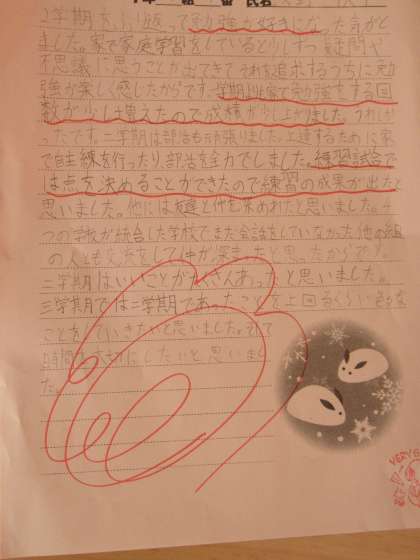 年 組 番 氏名
2学期をふり返って勉強が好きになった気がし
ました。家で家庭学習をしていると少しずつ疑問や
不思議に思うことが出てきてそれを追求するうちに勉
強が楽しく感じたからです。学期よりも家で勉強をする回
数が少し増えたので成績が少し上がりました。うれしか
ったです。二学期は部活も頑張りました。上達するために家
で自主練を行ったり、部活を全力でしました。練習試合で
は点を決めることができたので練習の成果が出たと
思いました。他には友達と仲を深めれたと思いました。4
つの学校が統合した学校でまだ会話をしていなかった他の組
の人とも交友をして仲が深まったと思ったからです。
二学期はいいことがたくさんあったと思いました。
三学期では二学期であったことを上回るくらい色々な
ことをしていきたいと思いました。
時間を大切にしたいと思いまし
た。
VERY G